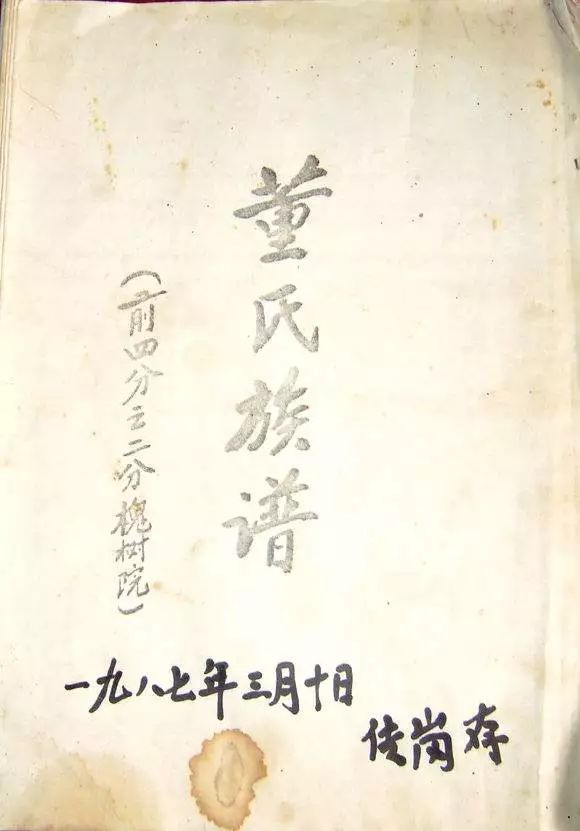 董氏族谱
(前四分之二分槐树院)
一九八七年三月十日
传岗存